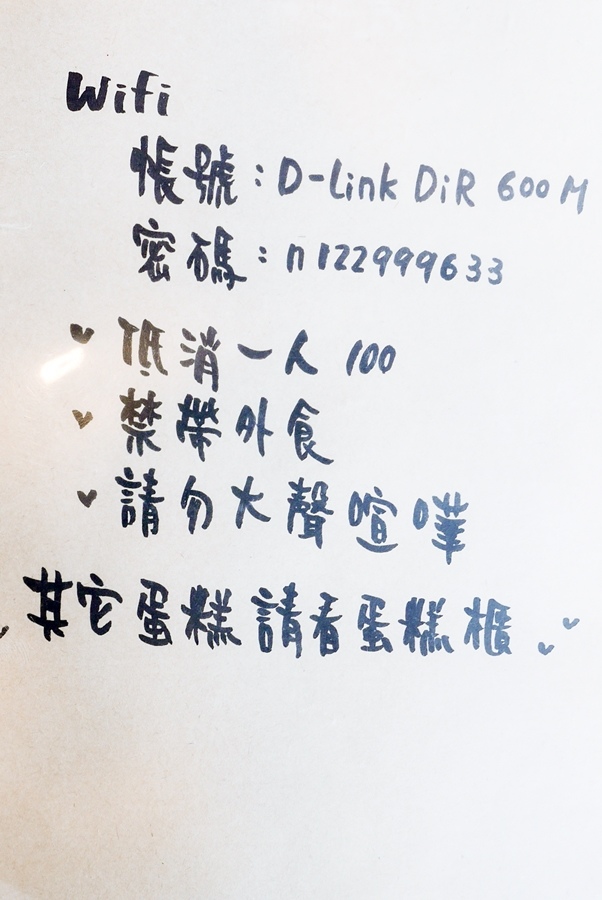 Wifi
帳號：D-Link DiR 600 M
密碼：n122999633
低消一人 100
禁帶外食
請勿大聲喧嘩
其它蛋糕請看蛋糕櫃